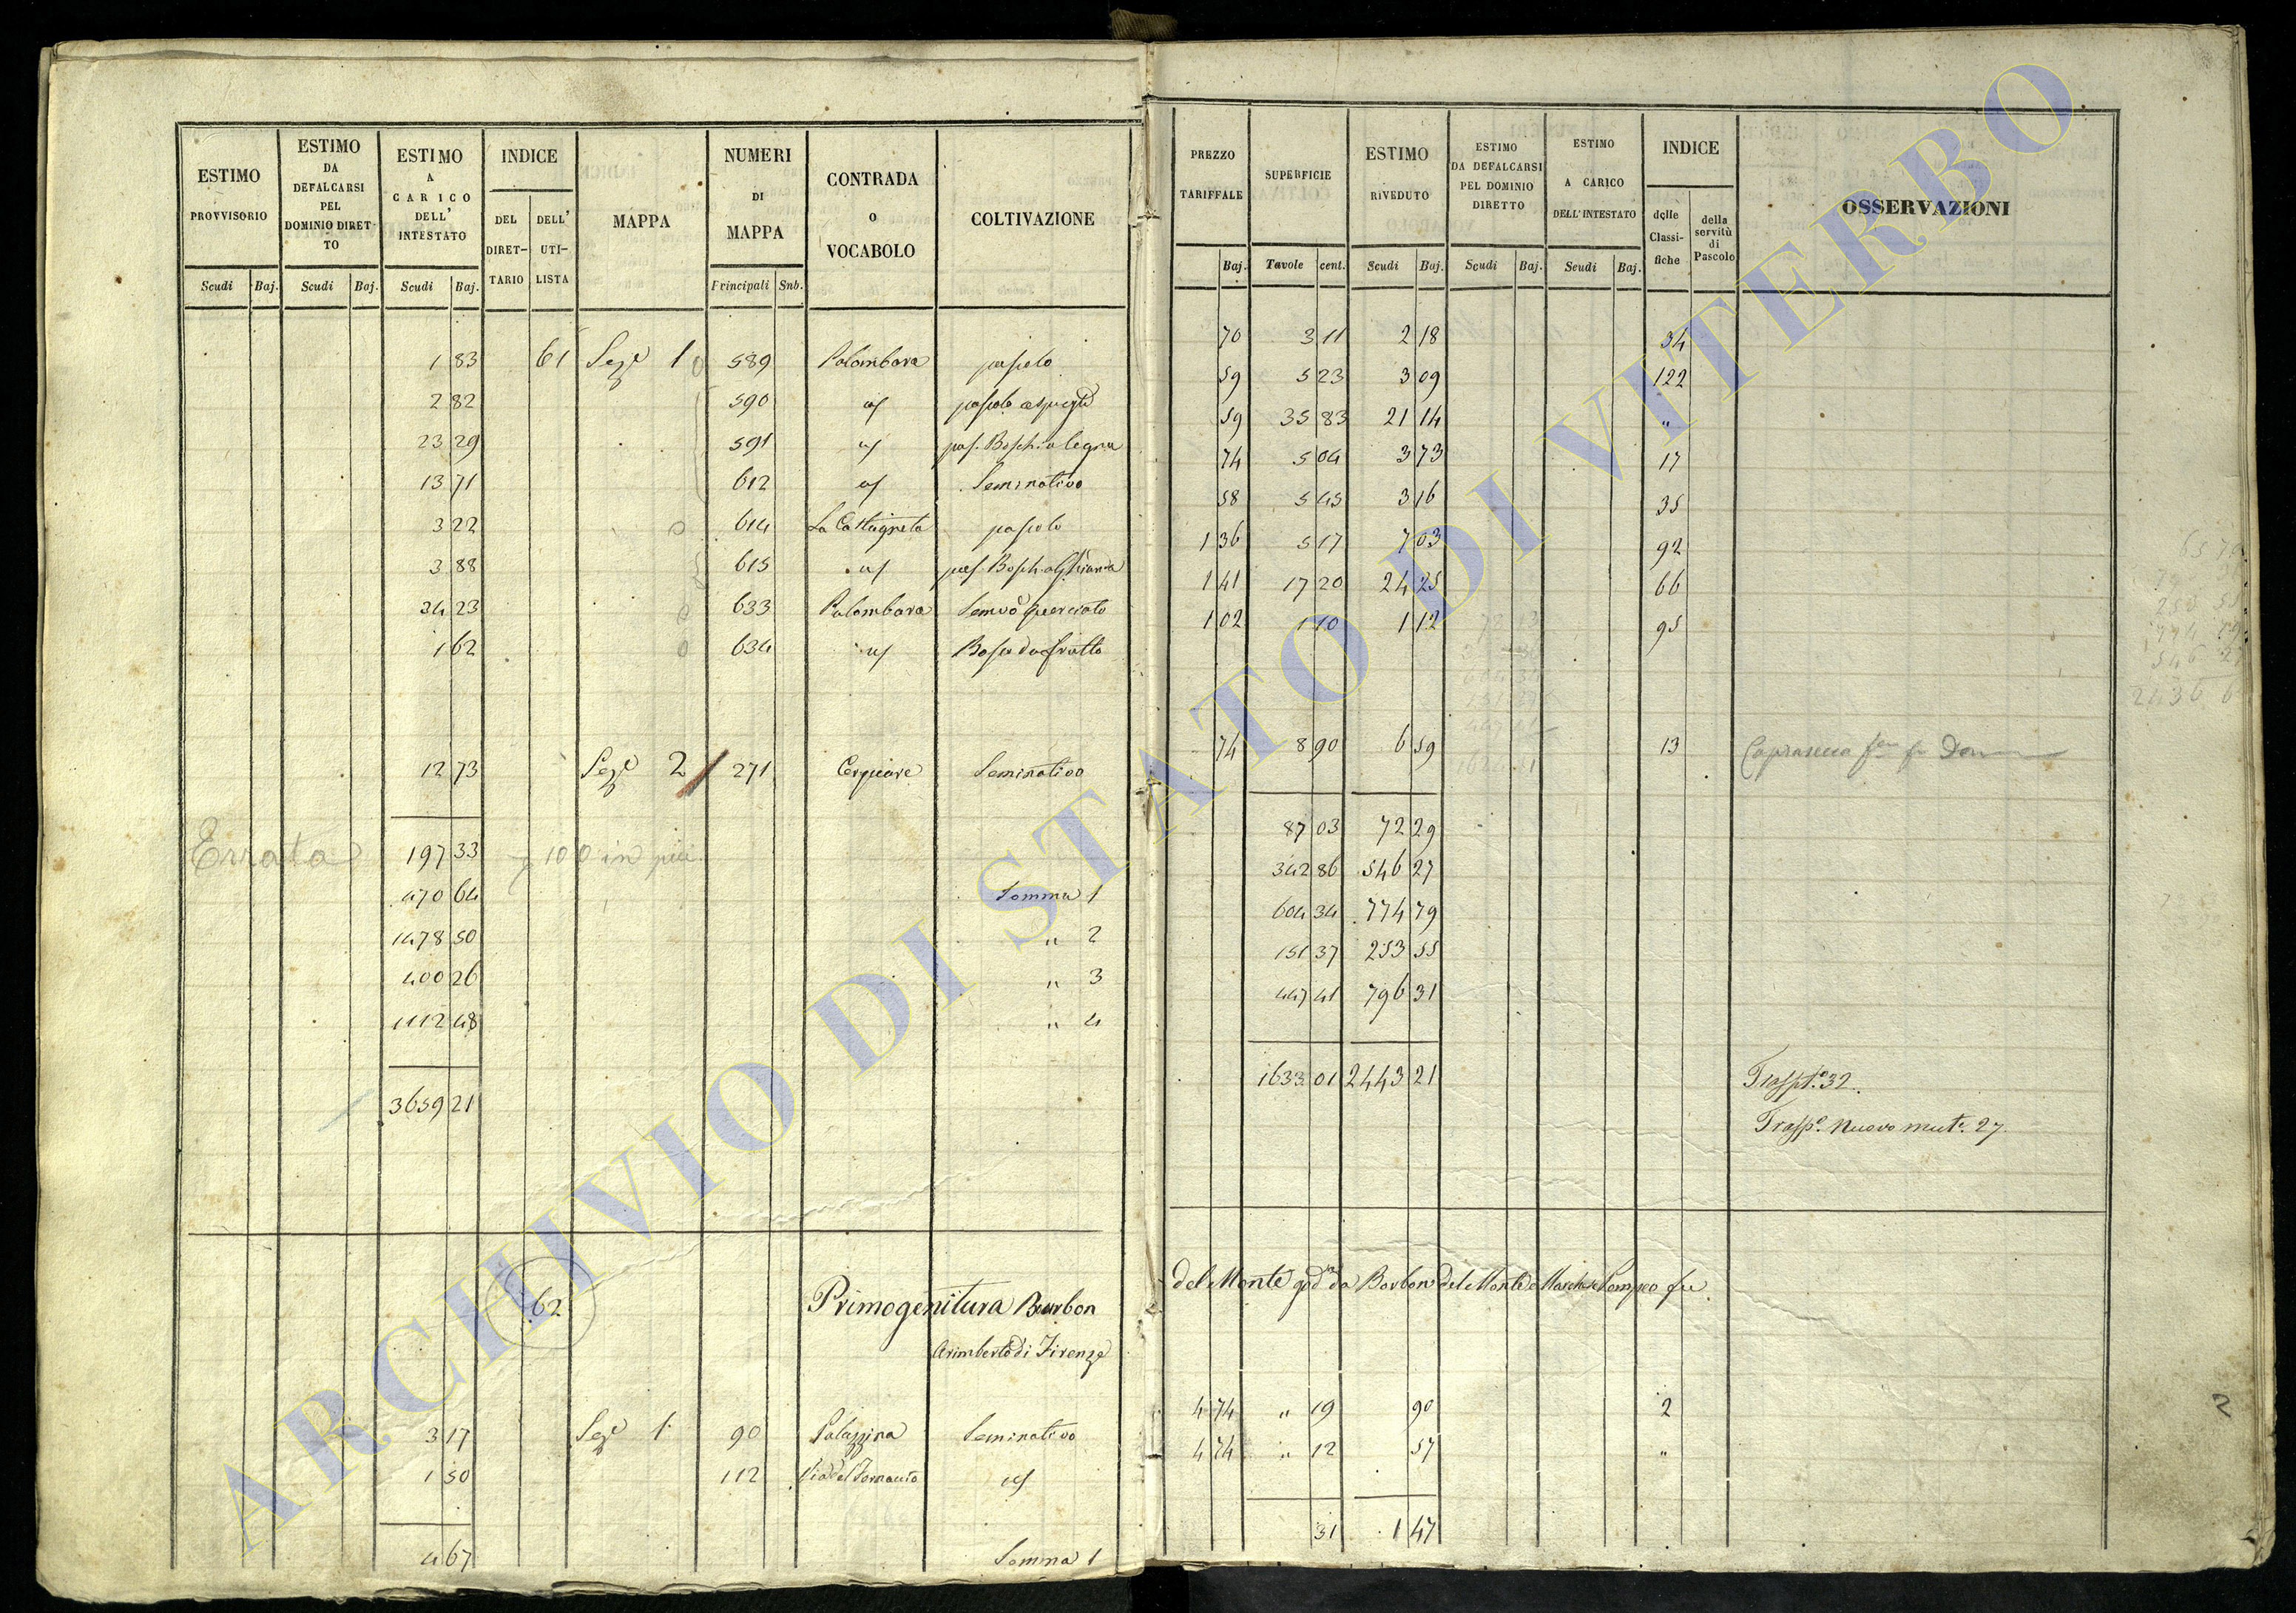 ESTIMO PROVVISORIO | ESTIMO DA DEFALCARSI PEL DOMINIO DIRET-TO | ESTIMO A CARICO DELL' INTESTATO | INDICE | MAPPA | NUMERI DI MAPPA | CONTRADA o VOCABOLO | COLTIVAZIONE
DEL DIRET-TARIO | DELL' UTI-LISTA
Scudi | Baj. | Scudi | Baj. | Scudi | Baj. | Principali | Snb.
1 83 61 Sez.e 1 589 Palombara pascolo
2 82 590
23 29 591
13 71 612 Seminativo
3 22 614 La Castagneta pascolo
3 88 615
24 23 633 Palombara
1 62 634
12 73 Sez.e 2 271 Cerquare Seminativo
Errata 197 33 100 in più
470 64 Somma 1
1478 50 " 2
400 26 " 3
1112 48 " 4
3659 21
62 Primogenitura Burbon
Arimberto di Firenze
3 17 Sez.e 1 90 Palazzina Seminativo
1 50 112
4 67 Somma 1
PREZZO TARIFFALE | SUPERFICIE | ESTIMO RIVEDUTO | ESTIMO DA DEFALCARSI PEL DOMINIO DIRETTO | ESTIMO A CARICO DELL'INTESTATO | INDICE | OSSERVAZIONI
delle Classi-fiche | della servitù di Pascolo
Baj. | Tavole | cent. | Scudi | Baj. | Scudi | Baj. | Scudi | Baj.
70 3 11 2 18 34
59 5 23 3 09 122
59 35 83 21 14 "
74 5 04 3 73 17
58 5 45 3 16 35
1 36 5 17 7 03 92
1 41 17 20 24 25 66
1 02 1 10 1 12 95
74 8 90 6 59 13
87 03 72 29
342 86 546 27
604 34 774 79
151 37 253 55
447 41 796 31
1633 01 2443 21 Trasp.to 32.
Trasp.o nuovo mut.e 27.
del Monte god.ta da Borbon del Monte Marchese Pompeo fu
4 74 " 19 90 2
4 74 " 12 57 "
31 1 47
2
ARCHIVIO DI STATO DI VITERBO